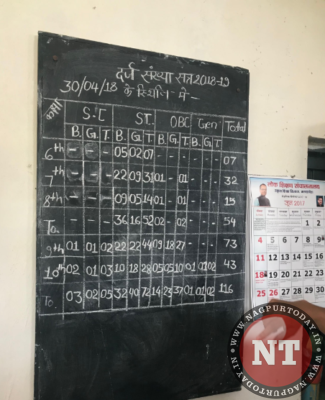 दर्ज संख्या सत्र 2018-19
30/04/18 के स्थिति में -
कक्षा S.C S.T. OBC Gen Total
B. G. T. B. G. T B G T B G T
6th - - - 05 02 07 - - - - - - 07
7th - - - 22 09 31 01 - 01 - - - 32
8th - - - 09 05 14 01 - 01 - - - 15
To. - - - 36 16 52 02 - 02 - - - 54
9th 01 01 02 22 22 44 09 18 27 - - - 73
10th 02 01 03 10 18 28 05 05 10 01 01 02 43
To. 03 02 05 32 40 72 14 23 37 01 01 02 116
जून 2017
1 2 3
4 5 6 7 8 9
11 12 13 14 15 16
18 19 20 21 22
25 26
WWW.NAGPURTODAY.IN
NT